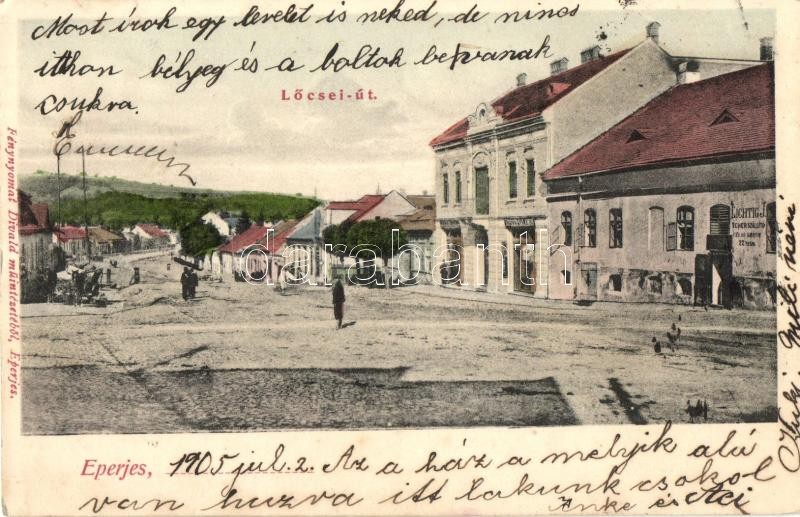 Most irok egy levelet is neked, de nincs
itthon bélyeg és a boltok bevanak
csukva.
Lőcsei-út.
Fénynyomat Divald műintézetéből, Eperjes.
LICHTIG J.
darabanth.com
Eperjes, 1905 jul. 2. Az a ház a melyik alá
van huzva itt lakunk csokol
Anke és